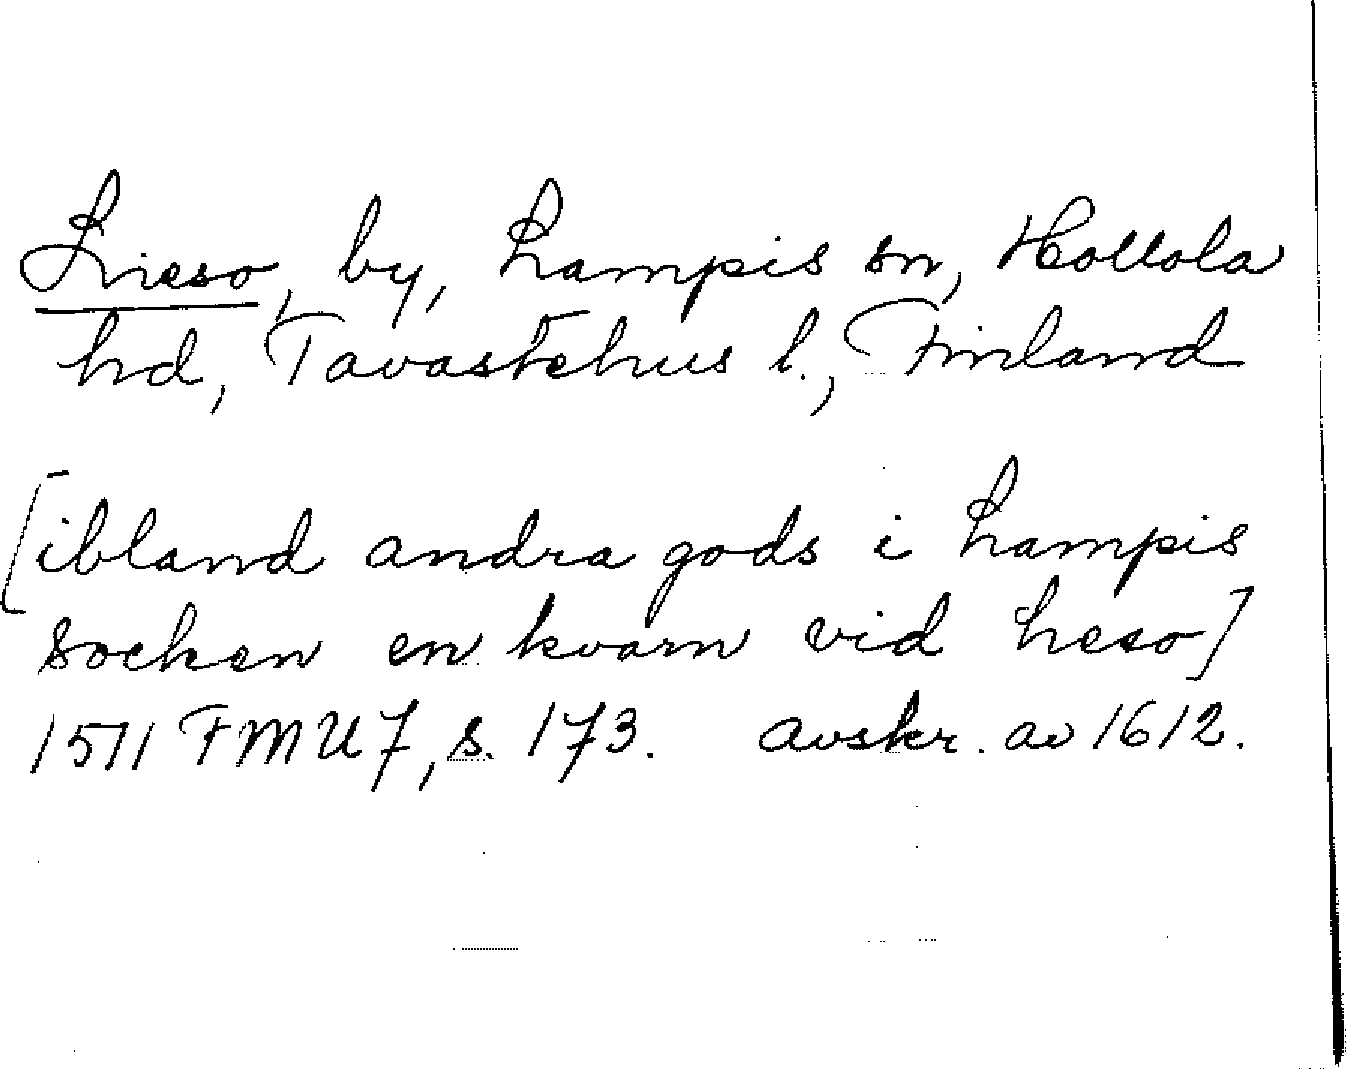 Lieso, by, Lampis sn, Hollola
hd, Tavastehus l., Finland
[ibland andra gods i Lampis
socken en kvarn vid Leso]
1511 FMU 7, s. 173. avskr. av 1612.